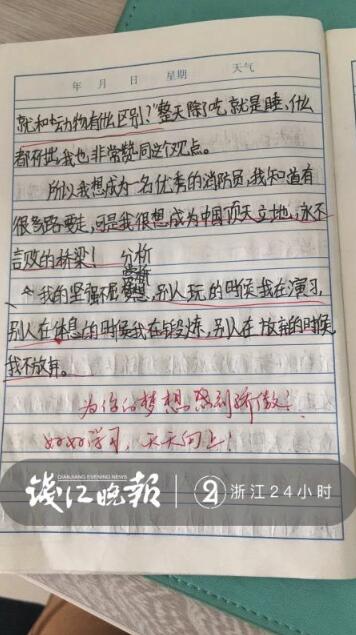 年 月 日 星期 天气
就和动物有什么区别？"整天除了吃就是睡，什么
都不做，我也非常赞同这个观点。
所以我想成为一名优秀的消防员，我知道有
很多路要走，可是我很想成为中国顶天立地，永不
言败的桥梁！
分析
我的坚强不屈梦想，别人玩的时候我在演习，
别人在休息的时候我在锻炼，别人在放弃的时候
我不放弃。
为你的梦想感到骄傲！
好好学习，天天向上！
钱江晚报
QIANJIANG EVENING NEWS
浙江24小时